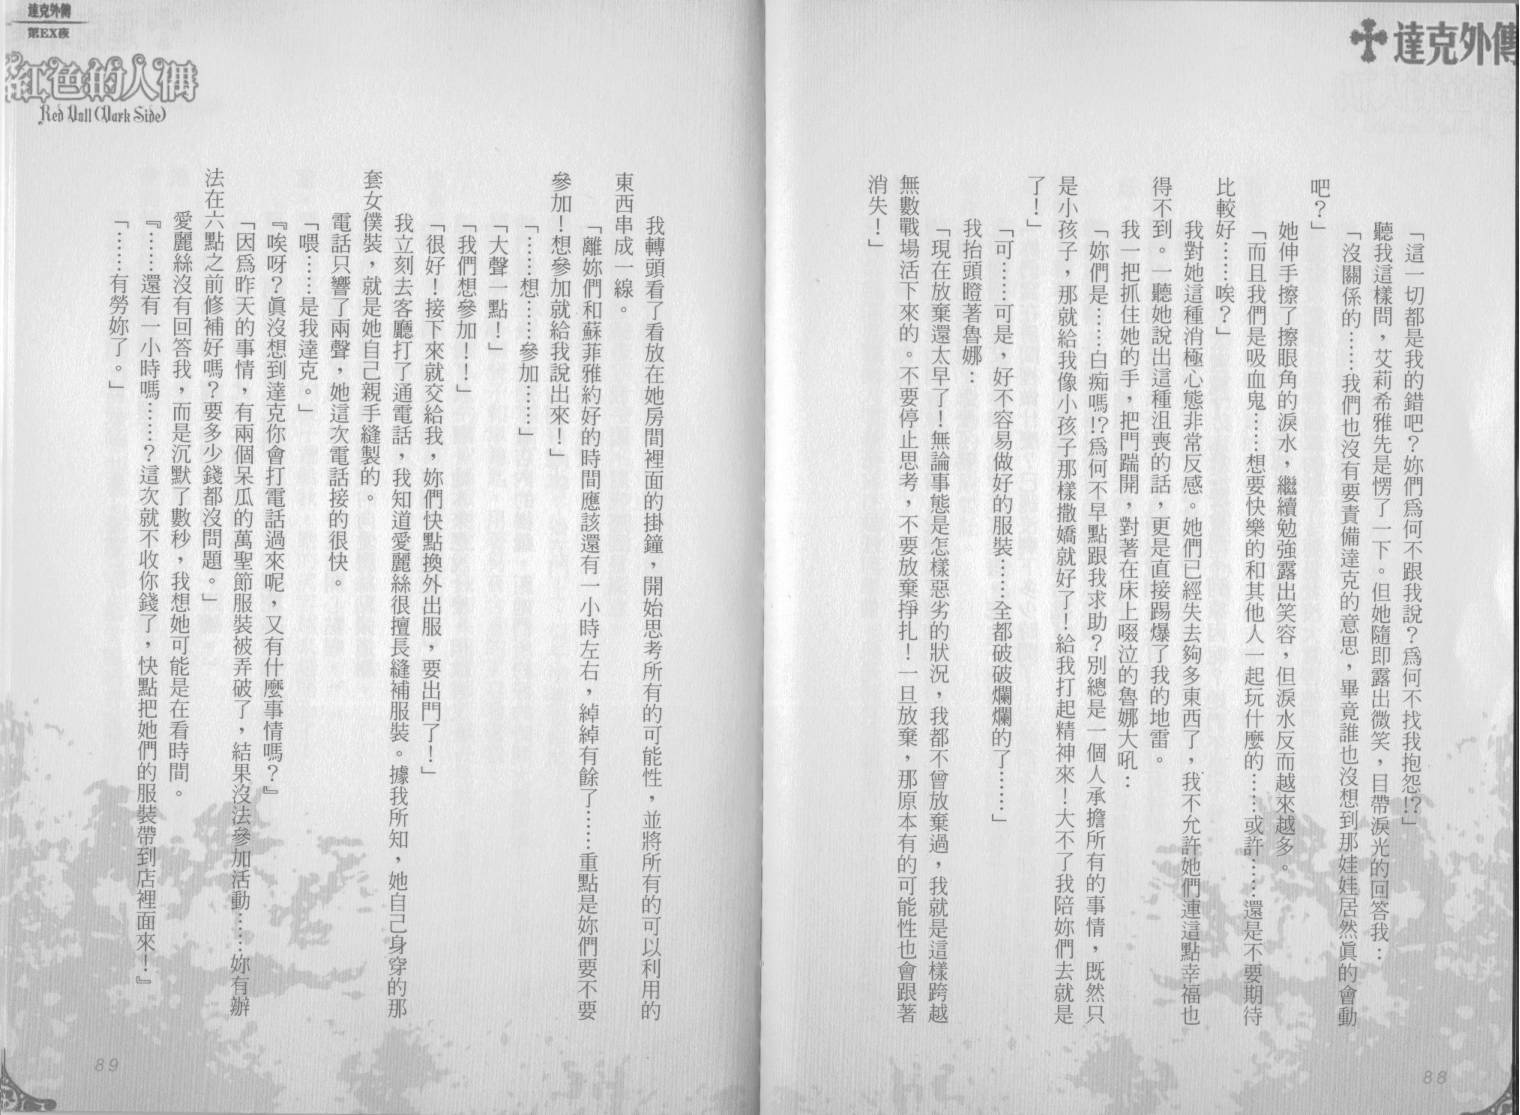 達克外傳
「這一切都是我的錯吧？妳們爲何不跟我說？爲何不找我抱怨!?」
聽我這樣問，艾莉希雅先是愣了一下。但她隨即露出微笑，目帶淚光的回答我：
「沒關係的……我們也沒有要責備達克的意思，畢竟誰也沒想到那娃娃居然眞的會動
吧？」
她伸手擦了擦眼角的淚水，繼續勉強露出笑容，但淚水反而越來越多。
「而且我們是吸血鬼……想要快樂的和其他人一起玩什麼的……或許……還是不要期待
比較好……唉？」
我對她這種消極心態非常反感。她們已經失去夠多東西了，我不允許她們連這點幸福也
得不到。一聽她說出這種沮喪的話，更是直接踢爆了我的地雷。
我一把抓住她的手，把門踹開，對著在床上啜泣的魯娜大吼：
「妳們是……白痴嗎!?爲何不早點跟我求助？別總是一個人承擔所有的事情，既然只
是小孩子，那就給我像小孩子那樣撒嬌就好了！給我打起精神來！大不了我陪妳們去就是
了！」
「可……可是，好不容易做好的服裝……全都破破爛爛的了……」
我抬頭瞪著魯娜：
「現在放棄還太早了！無論事態是怎樣惡劣的狀況，我都不曾放棄過，我就是這樣跨越
無數戰場活下來的。不要停止思考，不要放棄掙扎！一旦放棄，那原本有的可能性也會跟著
消失！」
88
達克外傳
第EX夜
紅色的人偶
Red Doll(Dark Side)
我轉頭看了看放在她房間裡面的掛鐘，開始思考所有的可能性，並將所有的可以利用的
東西串成一線。
「離妳們和蘇菲雅約好的時間應該還有一小時左右，綽綽有餘了……重點是妳們要不要
參加！想參加就給我說出來！」
「……想……參加……」
「大聲一點！」
「我們想參加！！」
「很好！接下來就交給我，妳們快點換外出服，要出門了！」
我立刻去客廳打了通電話，我知道愛麗絲很擅長縫補服裝。據我所知，她自己身穿的那
套女僕裝，就是她自己親手縫製的。
電話只響了兩聲，她這次電話接的很快。
「喂……是我達克。」
『唉呀？眞沒想到達克你會打電話過來呢，又有什麼事情嗎？』
「因爲昨天的事情，有兩個呆瓜的萬聖節服裝被弄破了，結果沒法參加活動……妳有辦
法在六點之前修補好嗎？要多少錢都沒問題。」
愛麗絲沒有回答我，而是沉默了數秒，我想她可能是在看時間。
『……還有一小時嗎……？這次就不收你錢了，快點把她們的服裝帶到店裡面來！』
「……有勞妳了。」
89